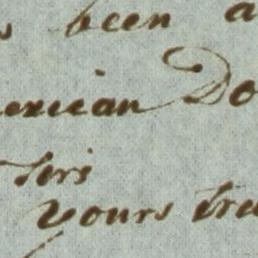 been a
exican Do
Sirs
Yours tru